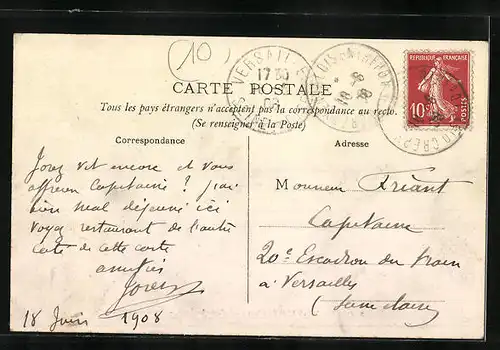 10
VERSAILLES
17 30
REPUBLIQUE FRANÇAISE
10c
POSTES
CARTE POSTALE
Tous les pays étrangers n'acceptent pas la correspondance au recto.
(Se renseigner à la Poste)
Correspondance
Adresse
vit encore et vous
Capitaine ? j'ai
bien mal déjeuné ici
voyez restaurant de l'autre
coté de cette carte
amitiés
18 Juin 1908
Monsieur Friant
Capitaine
20e Escadron du train
à Versailles
(Seine et Oise)